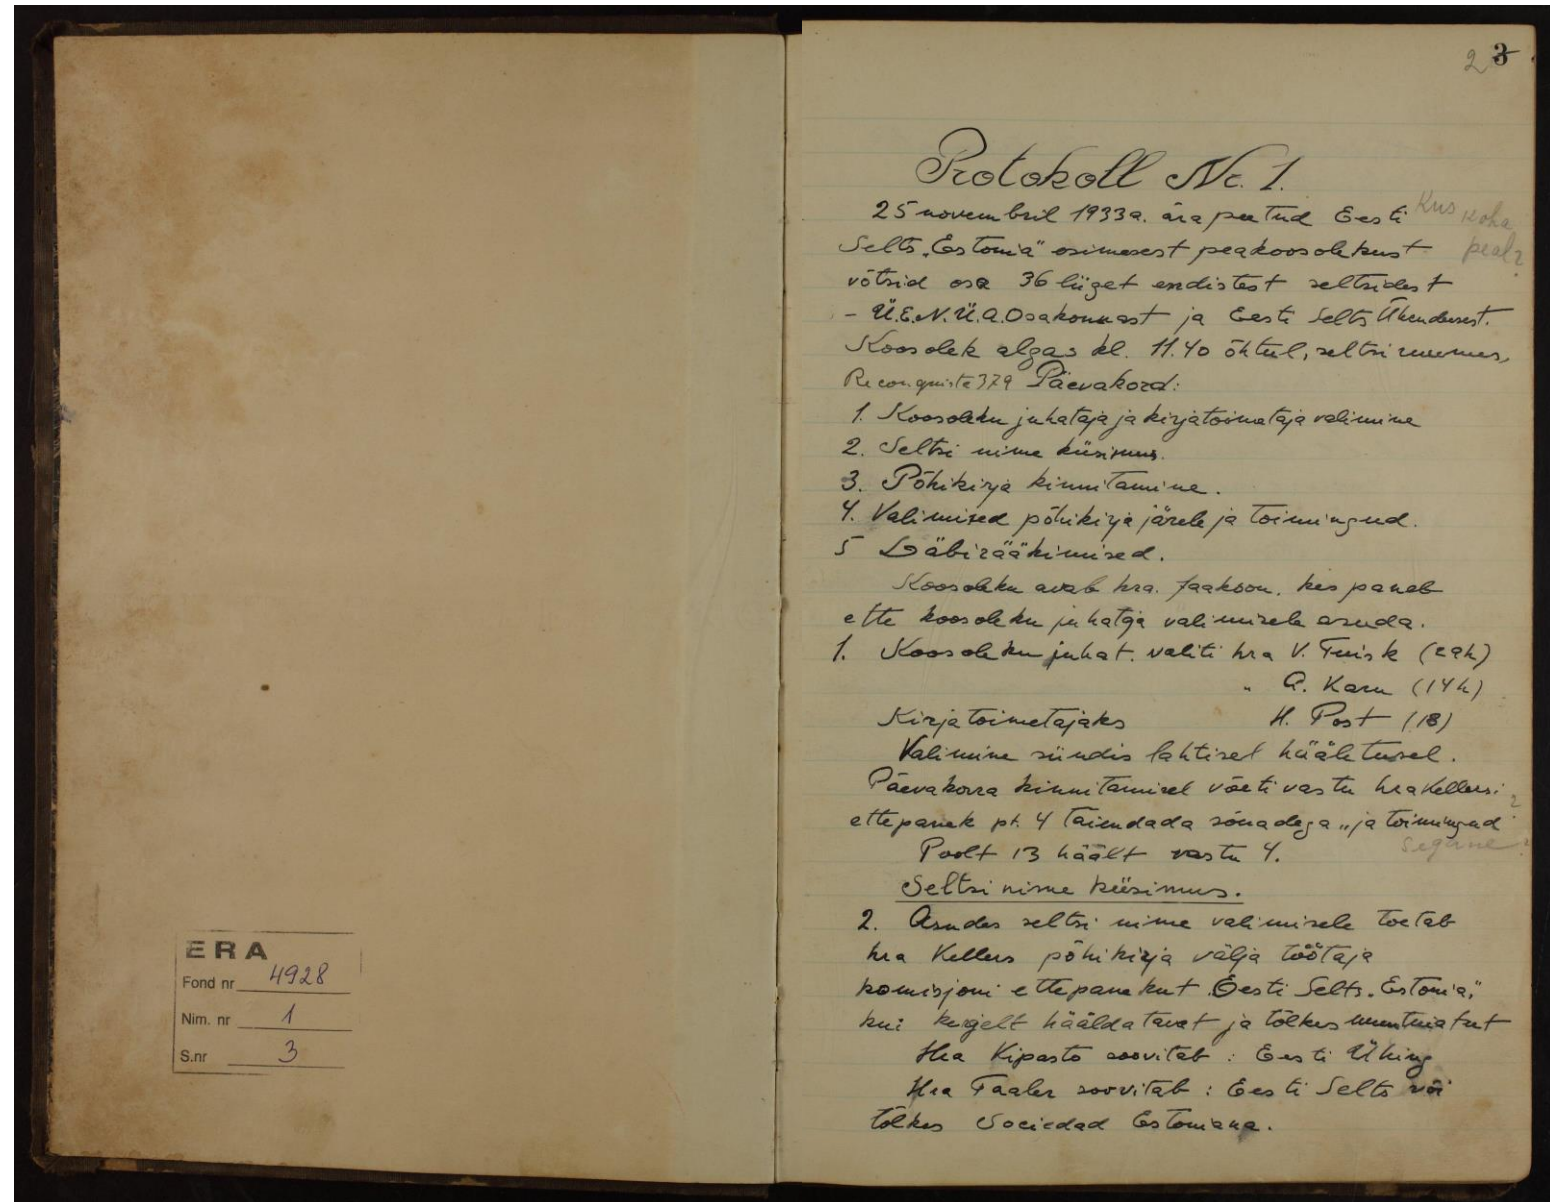 ERA
Fond nr 4928
Nim. nr 1
S.nr 3
2 3
Protokoll Nr. 1.
25 novembril 1933 a. ära peetud Eesti
Kus koha
peal?
Selts „Estonia" esimesest peakoosolekust
võtsid osa 36 liiget endistest seltsidest
- Ü.E.N.Ü.A. Osakonnast ja Eesti Selts Ühendusest.
Koosolek algas kl. 11.40 õhtul, seltsi ruumes,
Reconquista 379 Päevakord:
1. Koosoleku juhataja ja kirjatoimetaja valimine
2. Seltsi nime küsimus.
3. Põhikirja kinnitamine.
4. Valimised põhikirja järele ja toimingud.
5 Läbirääkimised.
Koosoleku avab hra. Jaakson. kes paneb
ette koosoleku juhataja valimisele asuda.
1. Koosoleku juhat. valiti hra V. Tuisk
" A. Karu (14 h)
Kirjatoimetajaks H. Post (18)
Valimine sündis lahtisel hääletusel.
Päevakorra kinnitamisel võeti vastu hra Kellersi
ettepanek pt. 4 täiendada sõnadega „ja toimingud" ?
segane?
Poolt 13 häält vastu 4.
Seltsi nime küsimus.
2. Asudes seltsi nime valimisele toetab
hra Kellers põhikirja välja töötaja
komisjoni ettepanekut Eesti Selts „Estonia",
kui kergelt hääldatavat ja tõlkes muutmatut
Hra Kipasto soovitab : Eesti Ühing
Hra Taaler soovitab : Eesti Selts või
tõlkes Sociedad Estoniana.